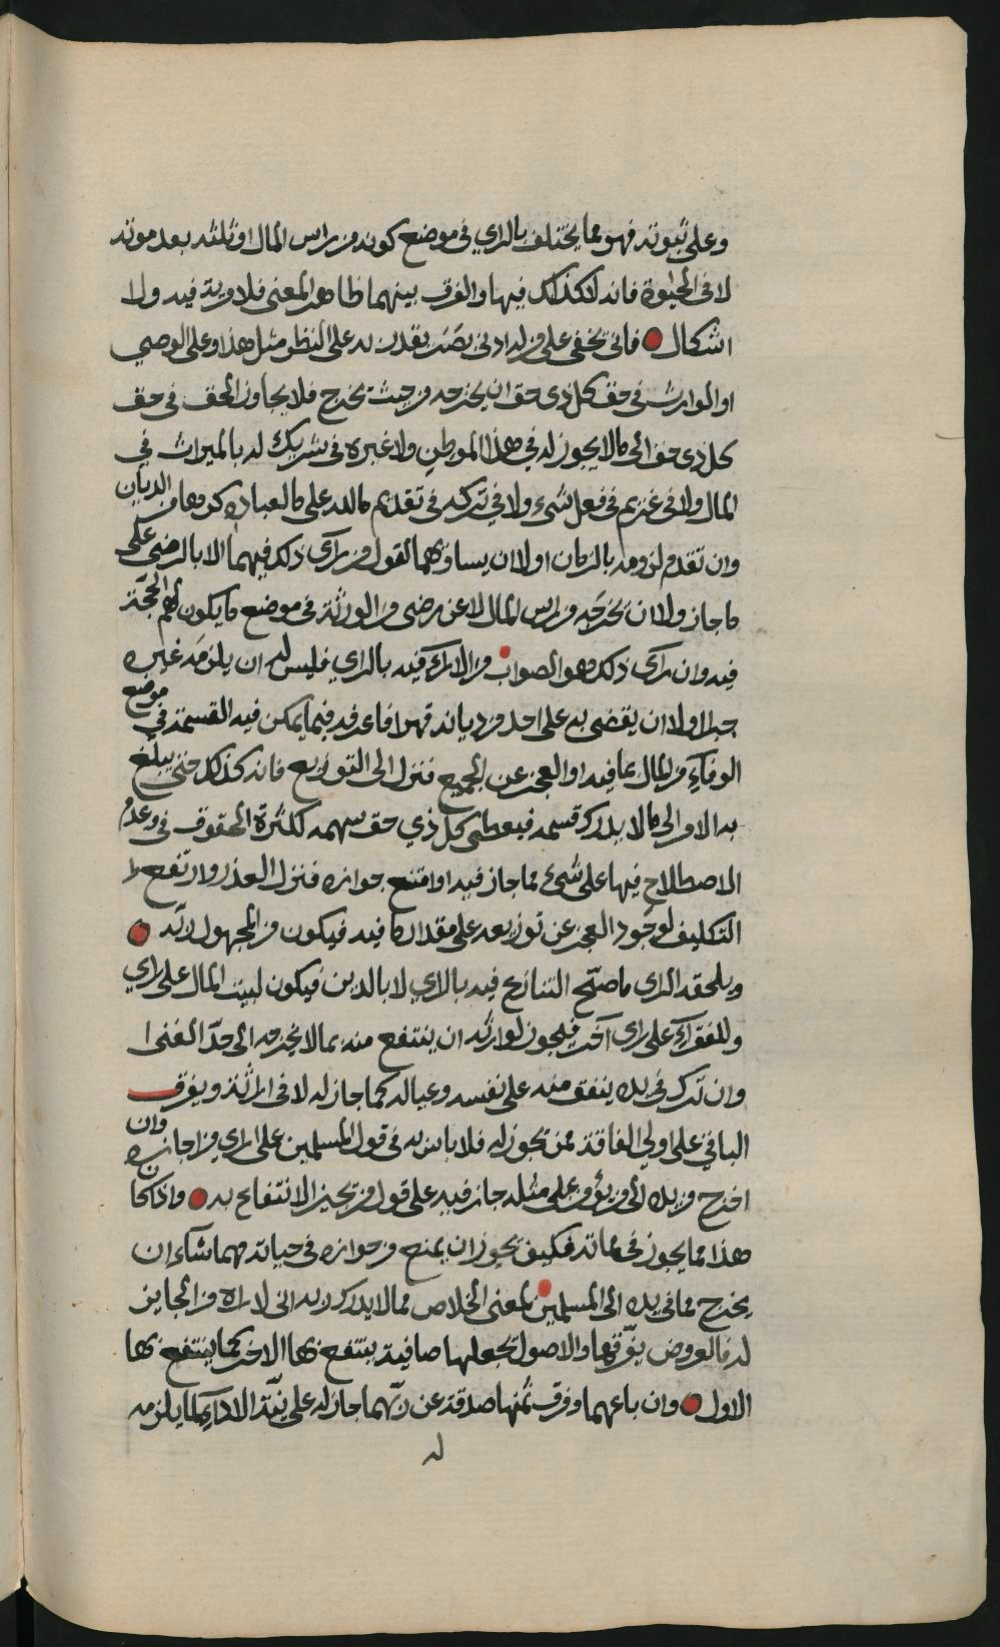 وعلى ثبوته فهو مما يختلف بالراي في موضع كونه من راس المال او ثلثه بعد موته
لا في الحيوة فانه لا كذلك فيها والفرق بينهما ظاهر المعنى فلا ريبة فيه ولا
اشكال فانى يخفى على من له ادنى بصر يقدر به على النظر مثل هذا وعلى الوصي
او الوارث في حق كل ذي حق ان يخرجه من حيث يخرج فلا يجاوز الحق في حق
كل ذي حق الى ما لا يجوز له في هذا الموطن ولا غيره في شريك له بالميراث في
المال ولا في غريم في فعل شيء ولا في تركه في تقديم ما لله على ما لعباده كرها من الديان
وان تقدم لزومه بالزمان اولا ان يساويهما لقول من راى ذلك فيهما الا بالرضى على
ما جاز ولا ان يخرجه من راس المال الا عن رضى من الورثة في موضع ما يكون لهم الحجة
فيه وان راى ذلك هو الصواب من الاراء فيه بالراي فليس له ان يلزمه غيره
جبرا ولا ان يقضى به على احد من ديانه قهرا فاعرفه فيما يمكن فيه القسمة في موضع
الوفاء من المال بما فيه او العجز عن الجميع فنزل الى التوزيع فانه كذلك حتى يبلغ
به الامر الى ما لا يدرك قسمه فيعطى كل ذي حق سهمه لكثرة الحقوق في وعدم
الاصطلاح فيها على شيء مما جاز فيه او امتنع جوازه فنزل العذر وارتفع
التكليف لوجود العجز عن توزيعه على مقدار ما فيه فيكون من المجهول ربه
ويلحقه الراي ما صح التنازع فيه بالراي لا بالدين فيكون لبيت المال على راي
وللفقراء على راى آخر فيجوز لوارثه ان ينتفع منه بما لا يخرجه الى حد الغنى
وان ترك في يده ينفق منه على نفسه وعياله كما جاز له لا في المرثة ويفرق
الباقي على اولي الفاقة ممن تجوز له فلا باس به في قول المسلمين على راي من اجازه وان
اخرج من يده الى من يؤمن على مثله جاز فيه على قول من يجيز الانتفاع به واذا كان
هذا مما يجوز في مماته فكيف يجوز ان يمنع من جوازه في حياته مهما شاء ان
يخرج مما في يده الى المسلمين لمعنى الخلاص مما لا يدرك ربه انى لاراه من الجايز
له فالعروض يفرقها والاصول يجعلها صافية ينتفع بها الاخر كما ينتفع بها
الاول وان باعهما وفرق ثمنها صدقة عن ربهما جاز له على نية الاداء لما يلزمه
له